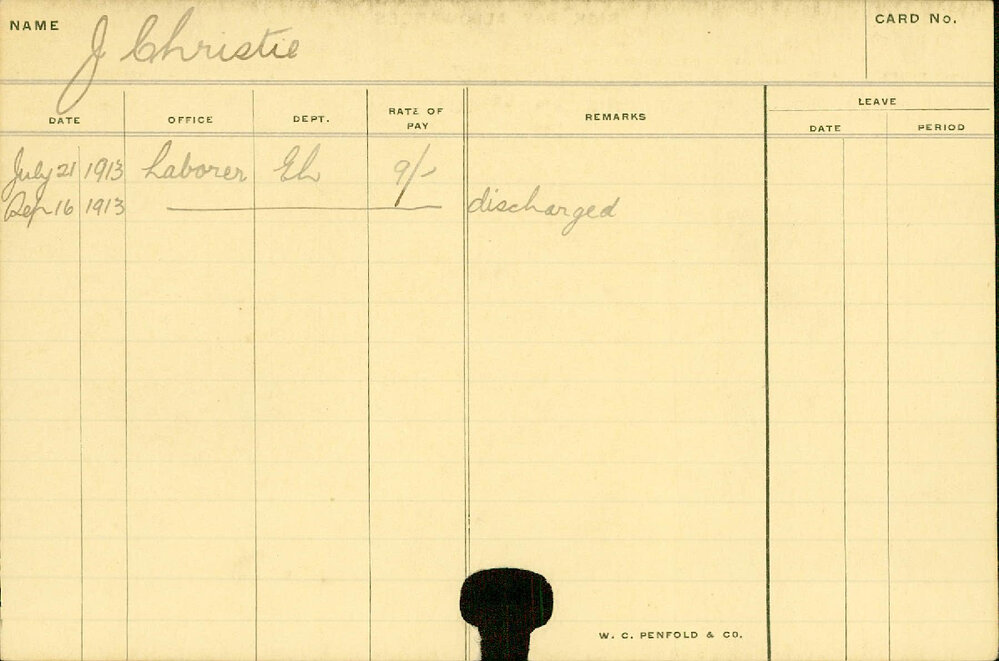 NAME J Christie CARD No.
DATE OFFICE DEPT. RATE OF PAY REMARKS LEAVE
DATE PERIOD
July 21 1913 Laborer 9/-
Sep 16 1913 discharged
W. C. PENFOLD & CO.